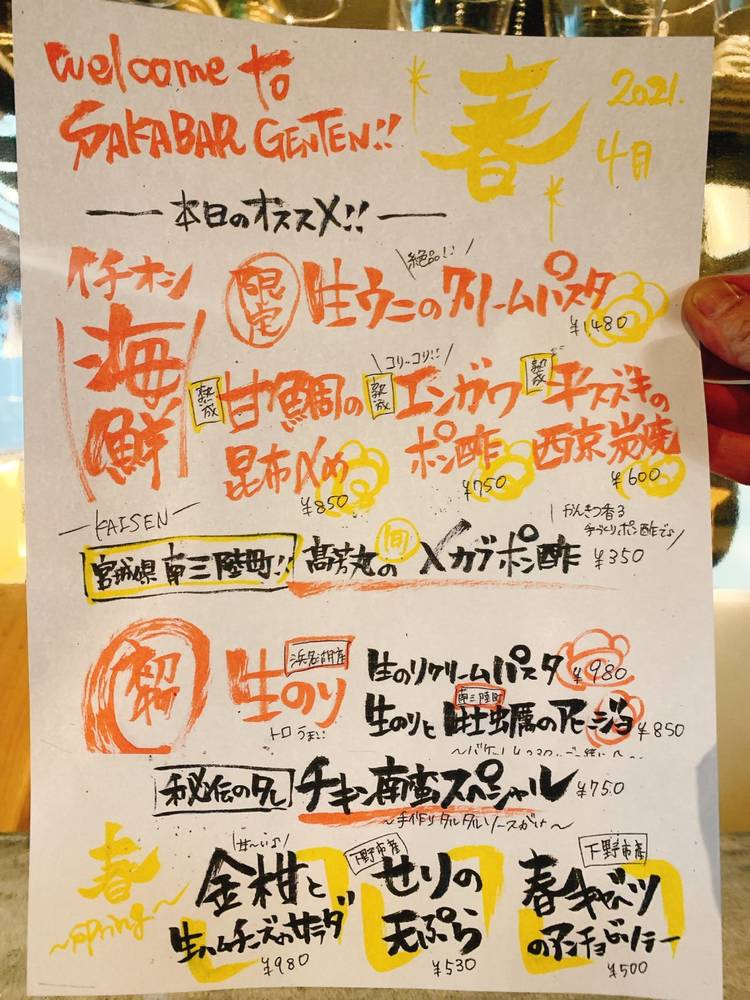 welcome to
SAKABAR GENTEN!!
春
2021.
4月
本日のオススメ!!
イチオシ
海鮮
KAISEN
限定
生ウニのクリームパスタ
絶品!!
¥1,480
熟成
甘鯛の
昆布〆め
¥850
コリッコリ!!
熟成
エンガワ
ポン酢
¥750
熟成
平スズキの
西京炭焼
¥600
宮城県 南三陸町!!
高芳丸の
旬
メカブポン酢
¥350
かんきつ香る
手づくりポン酢でs
生のり
浜名湖産
トロうまい
生のりクリームパスタ
¥980
南三陸町
生のりと牡蠣のアヒージョ
¥850
秘伝のタレ
チキン南蛮スペシャル
¥750
~手作りタルタルソースがけ~
春
~spring~
甘~いよ
金柑と
生ハムチーズのサラダ
¥980
下野市産
せりの
天ぷら
¥530
下野市産
春キャベツ
のアンチョビソテー
¥500